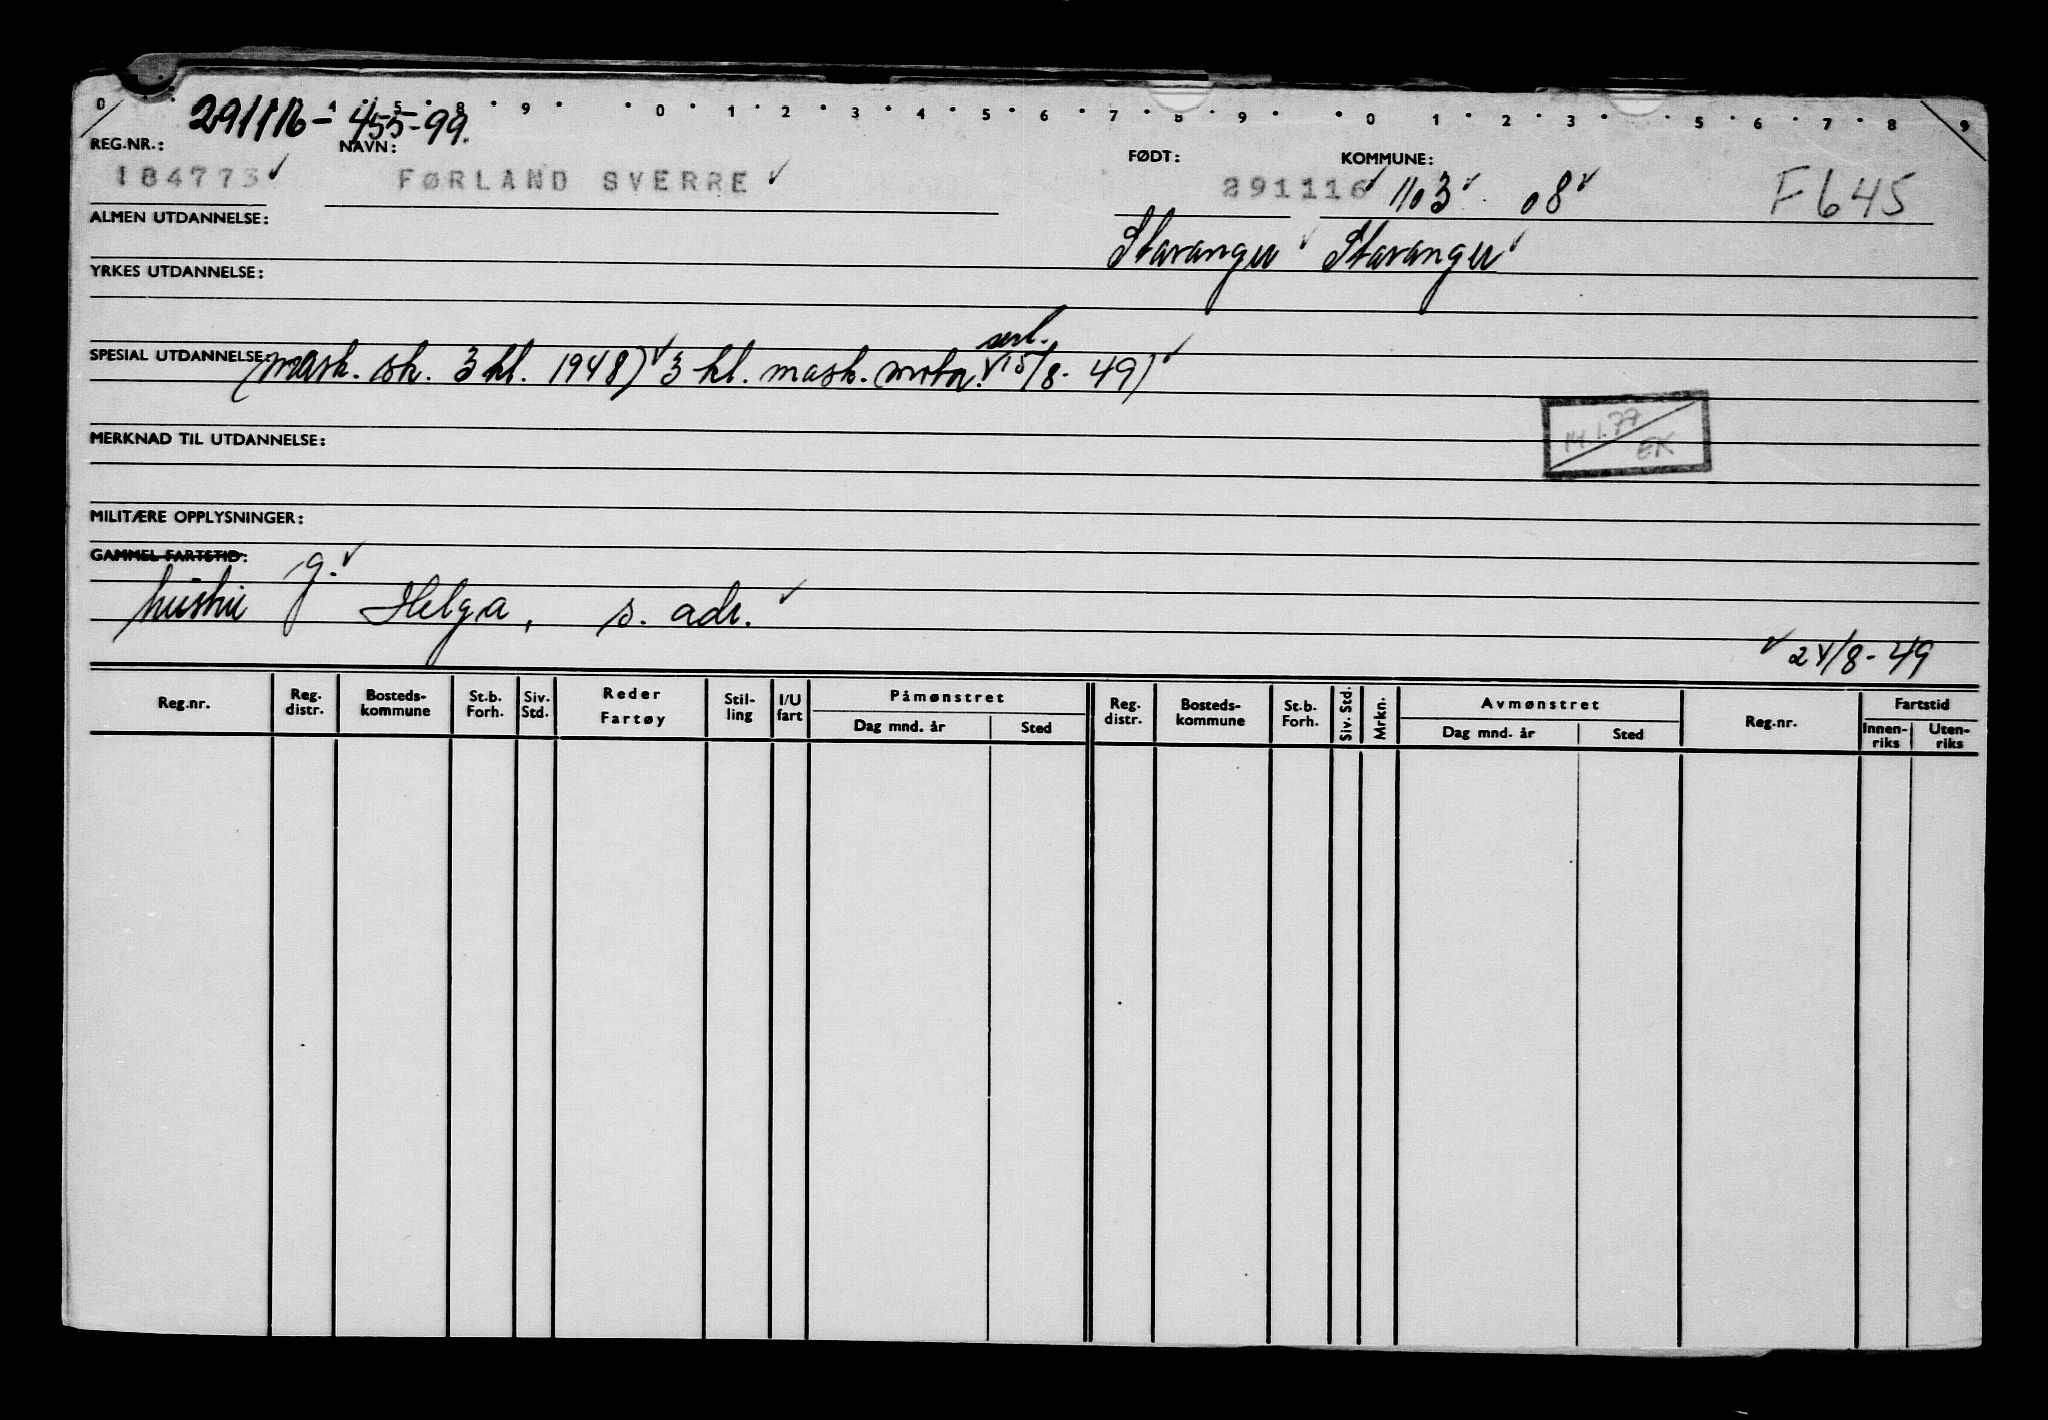 0 4 5 8 9 0 1 2 3 4 5 6 7 8 9 0 1 2 3 5 6 7 8 9
291116-455-99.
REG.NR.: NAVN: FØDT: KOMMUNE:
184773 FØRLAND SVERRE 291116 1103 08 F645
ALMEN UTDANNELSE: Stavanger Stavanger
YRKES UTDANNELSE:
SPESIAL UTDANNELSE: (mask. sk. 3 kl. 1948) 3 kl. mask. motor. 15/8-49)
MERKNAD TIL UTDANNELSE: 14.1.77 EK
MILITÆRE OPPLYSNINGER:
GAMMEL FARTSTID:
g.
hustru Helga, s. adr.
24/8-49
Reg.nr. Reg. distr. Bosteds-kommune St.b. Forh. Siv. Std. Reder Fartøy Stil-ling I/U fart Påmønstret Dag mnd. år Sted Reg. distr. Bosteds-kommune St.b. Forh. Siv. Std. Mrkn. Avmønstret Dag mnd. år Sted Reg.nr. Fartstid Innen-riks Uten-riks